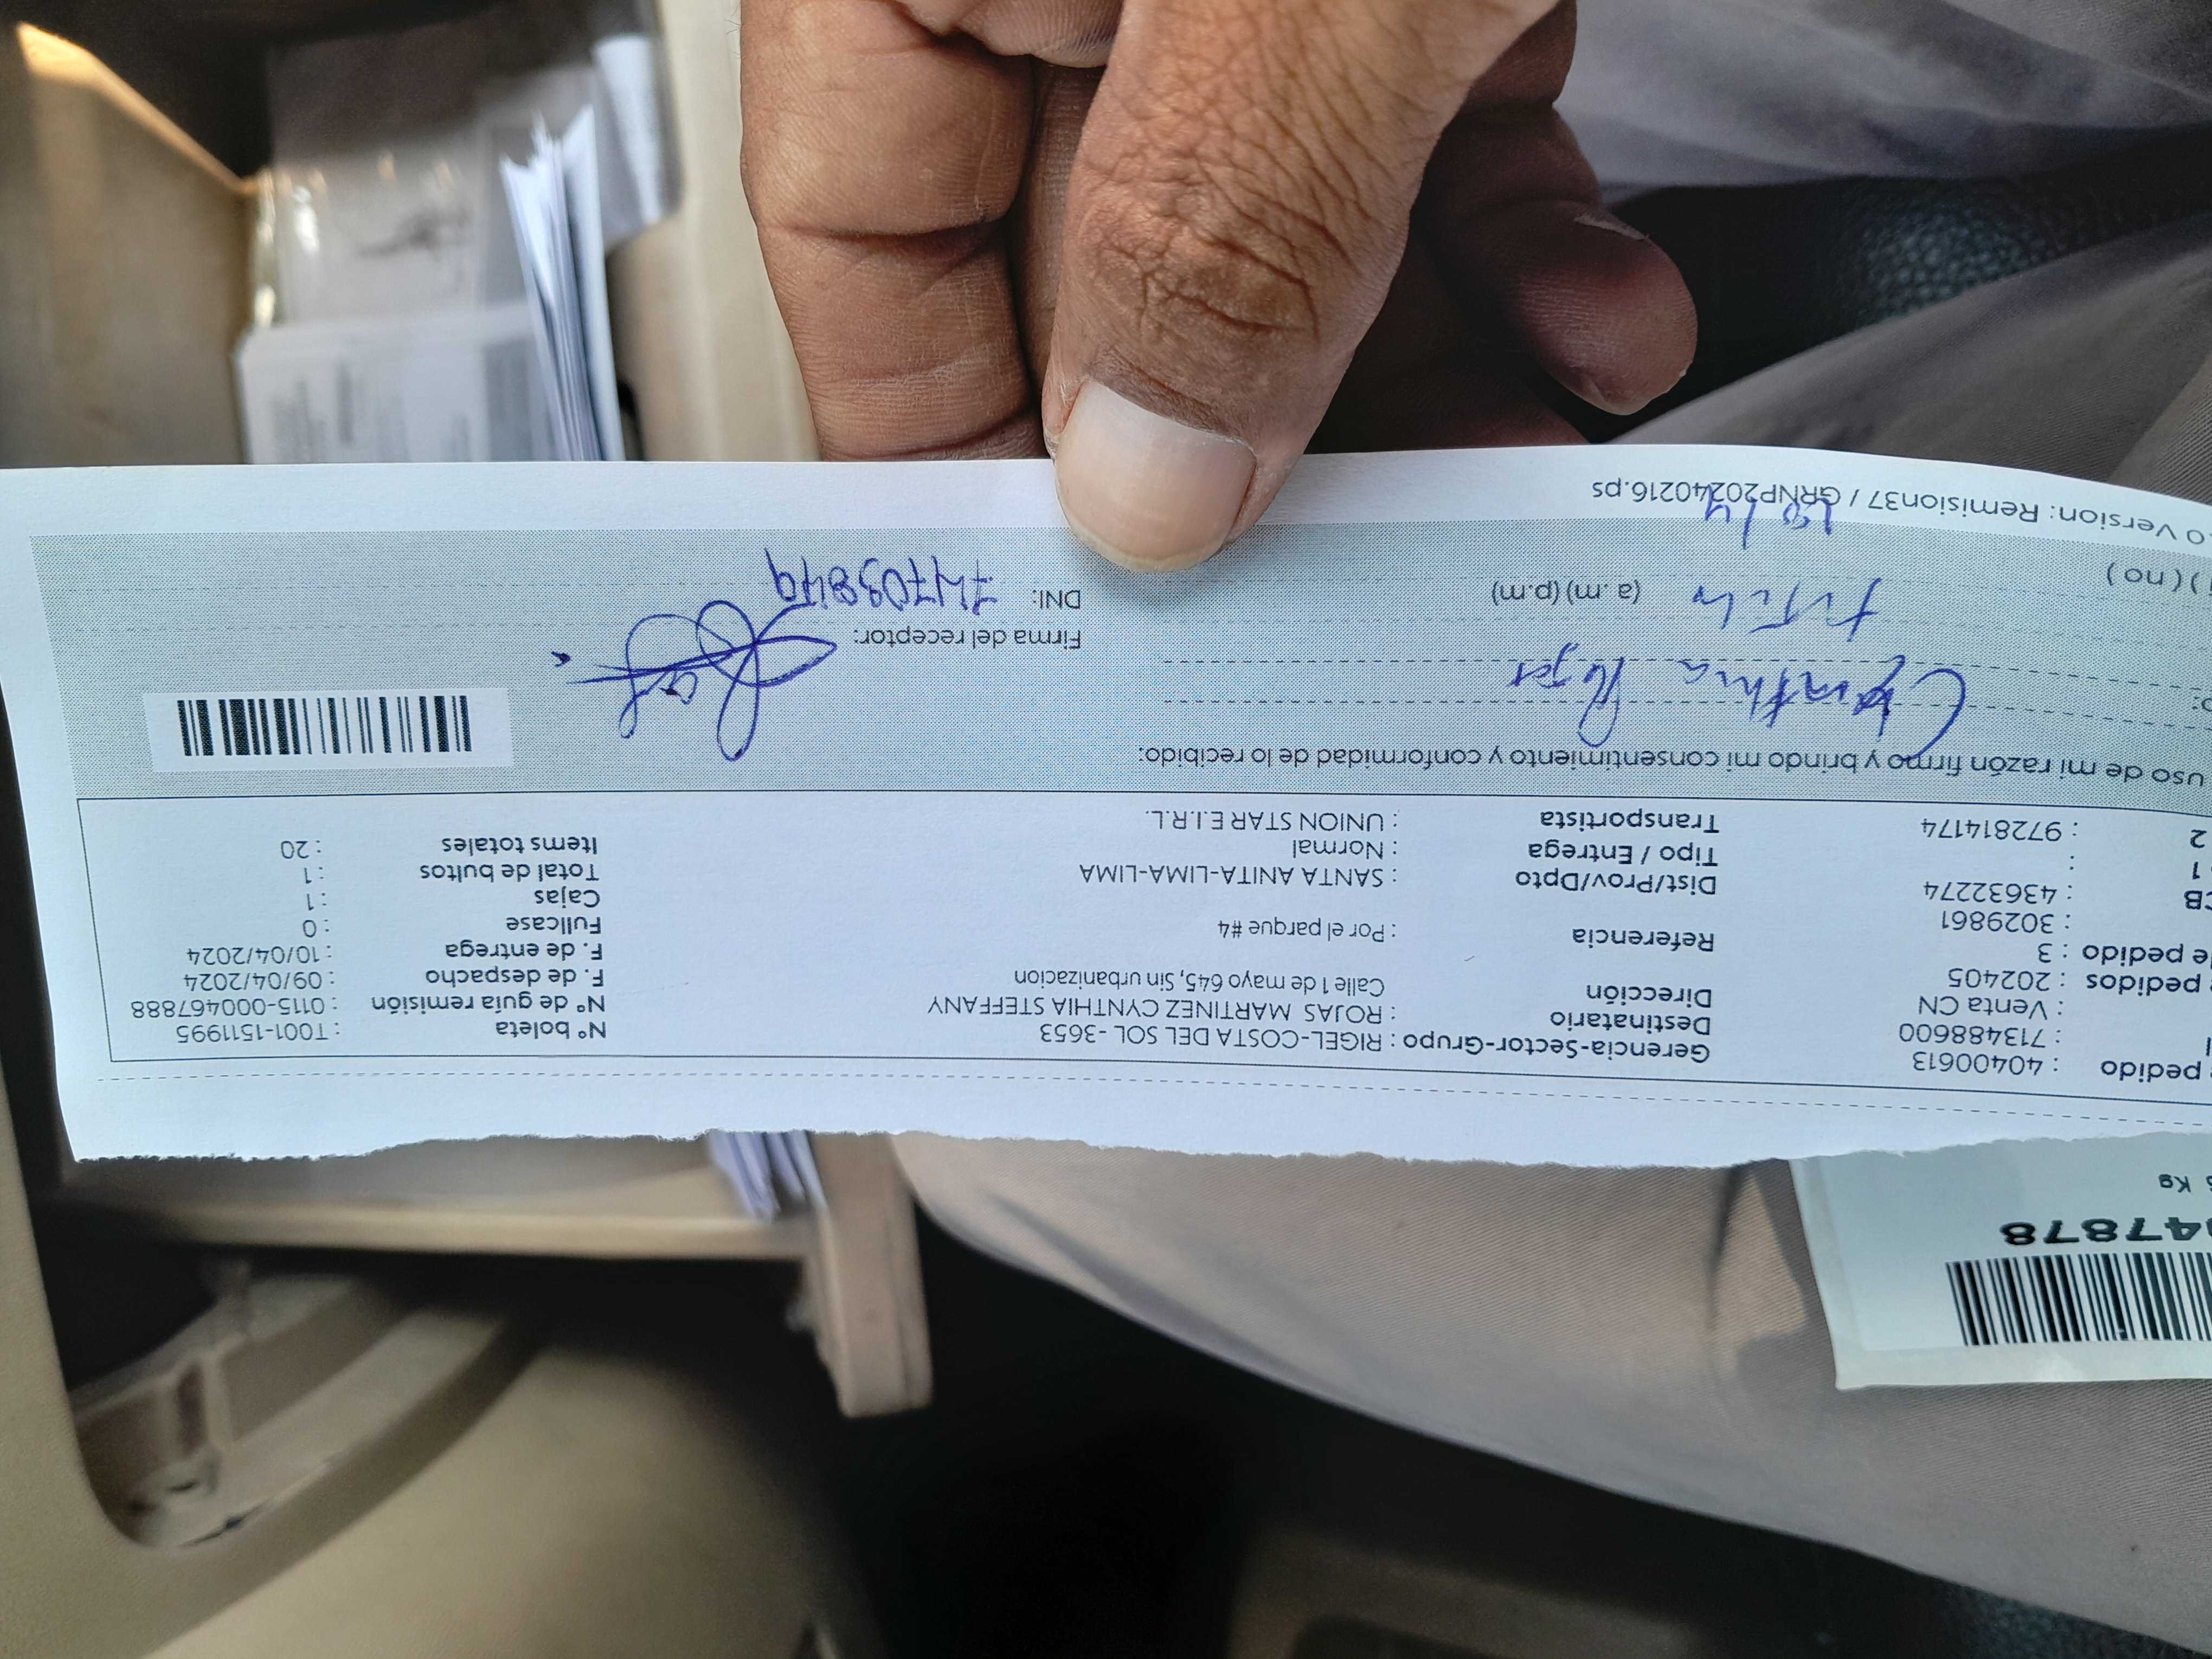 e pedido : 40400613
: 713488600
: Venta CN
pedidos : 202405
e pedido : 3
: 3029861
CB : 43632274
1 :
2 : 972814174
Gerencia-Sector-Grupo : RIGEL-COSTA DEL SOL -3653
Destinatario : ROJAS MARTINEZ CYNTHIA STEFFANY
Dirección Calle 1 de mayo 645, Sin urbanizacion
Referencia : Por el parque #4
Dist/Prov/Dpto : SANTA ANITA-LIMA-LIMA
Tipo / Entrega : Normal
Transportista : UNION STAR E.I.R.L.
N° boleta : T001-1511995
N° de guía remisión : 0115-000467888
F. de despacho : 09/04/2024
F. de entrega : 10/04/2024
Fullcase : 0
Cajas : 1
Total de bultos : 1
Items totales : 20
uso de mi razón firmo y brindo mi consentimiento y conformidad de lo recibido:
Cynthia Rojas
Firma del receptor:
titular (a.m) (p.m)
DNI:
) ( no )
0 Version: Remision37 / GRNP20240216.ps
Kg
47878